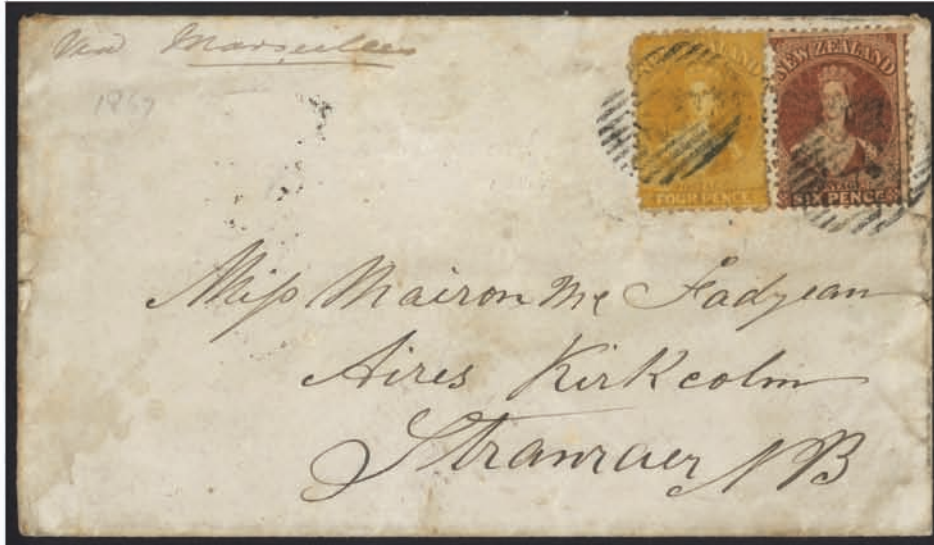 Via Marseilles
1867
NEW ZEALAND
FOUR PENCE
NEW ZEALAND
POSTAGE
SIX PENCE
Miss Mairon Mc Fadyean
Aires Kirkcolm
Stranraer N B